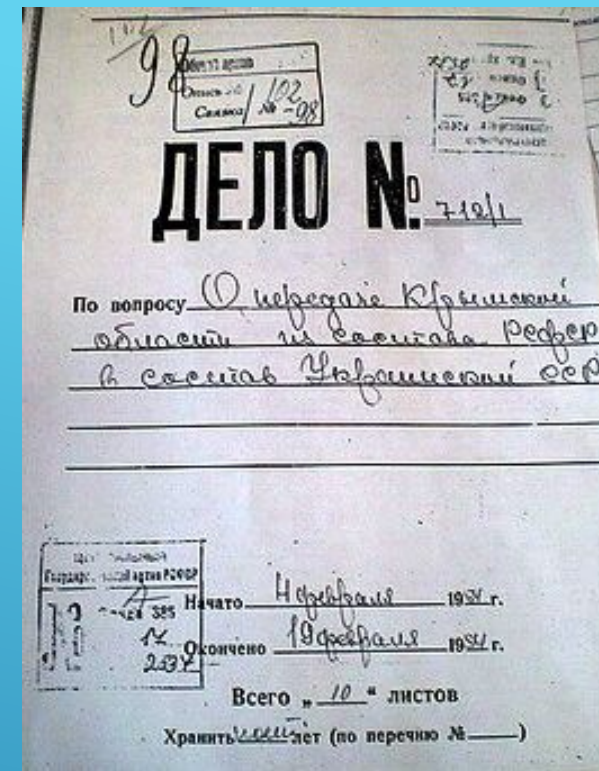 98
Общий архив
Опись №
Связка № 102-98
ДЕЛО № 712/1
По вопросу О передаче Крымской
области из состава РСФСР
в состав Украинской ССР
Государс архив РСФСР
385
Начато 4 февраля 1954 г.
17
Окончено 19 февраля 1954 г.
2537
Всего „ 10 “ листов
Хранить лет (по перечню № )